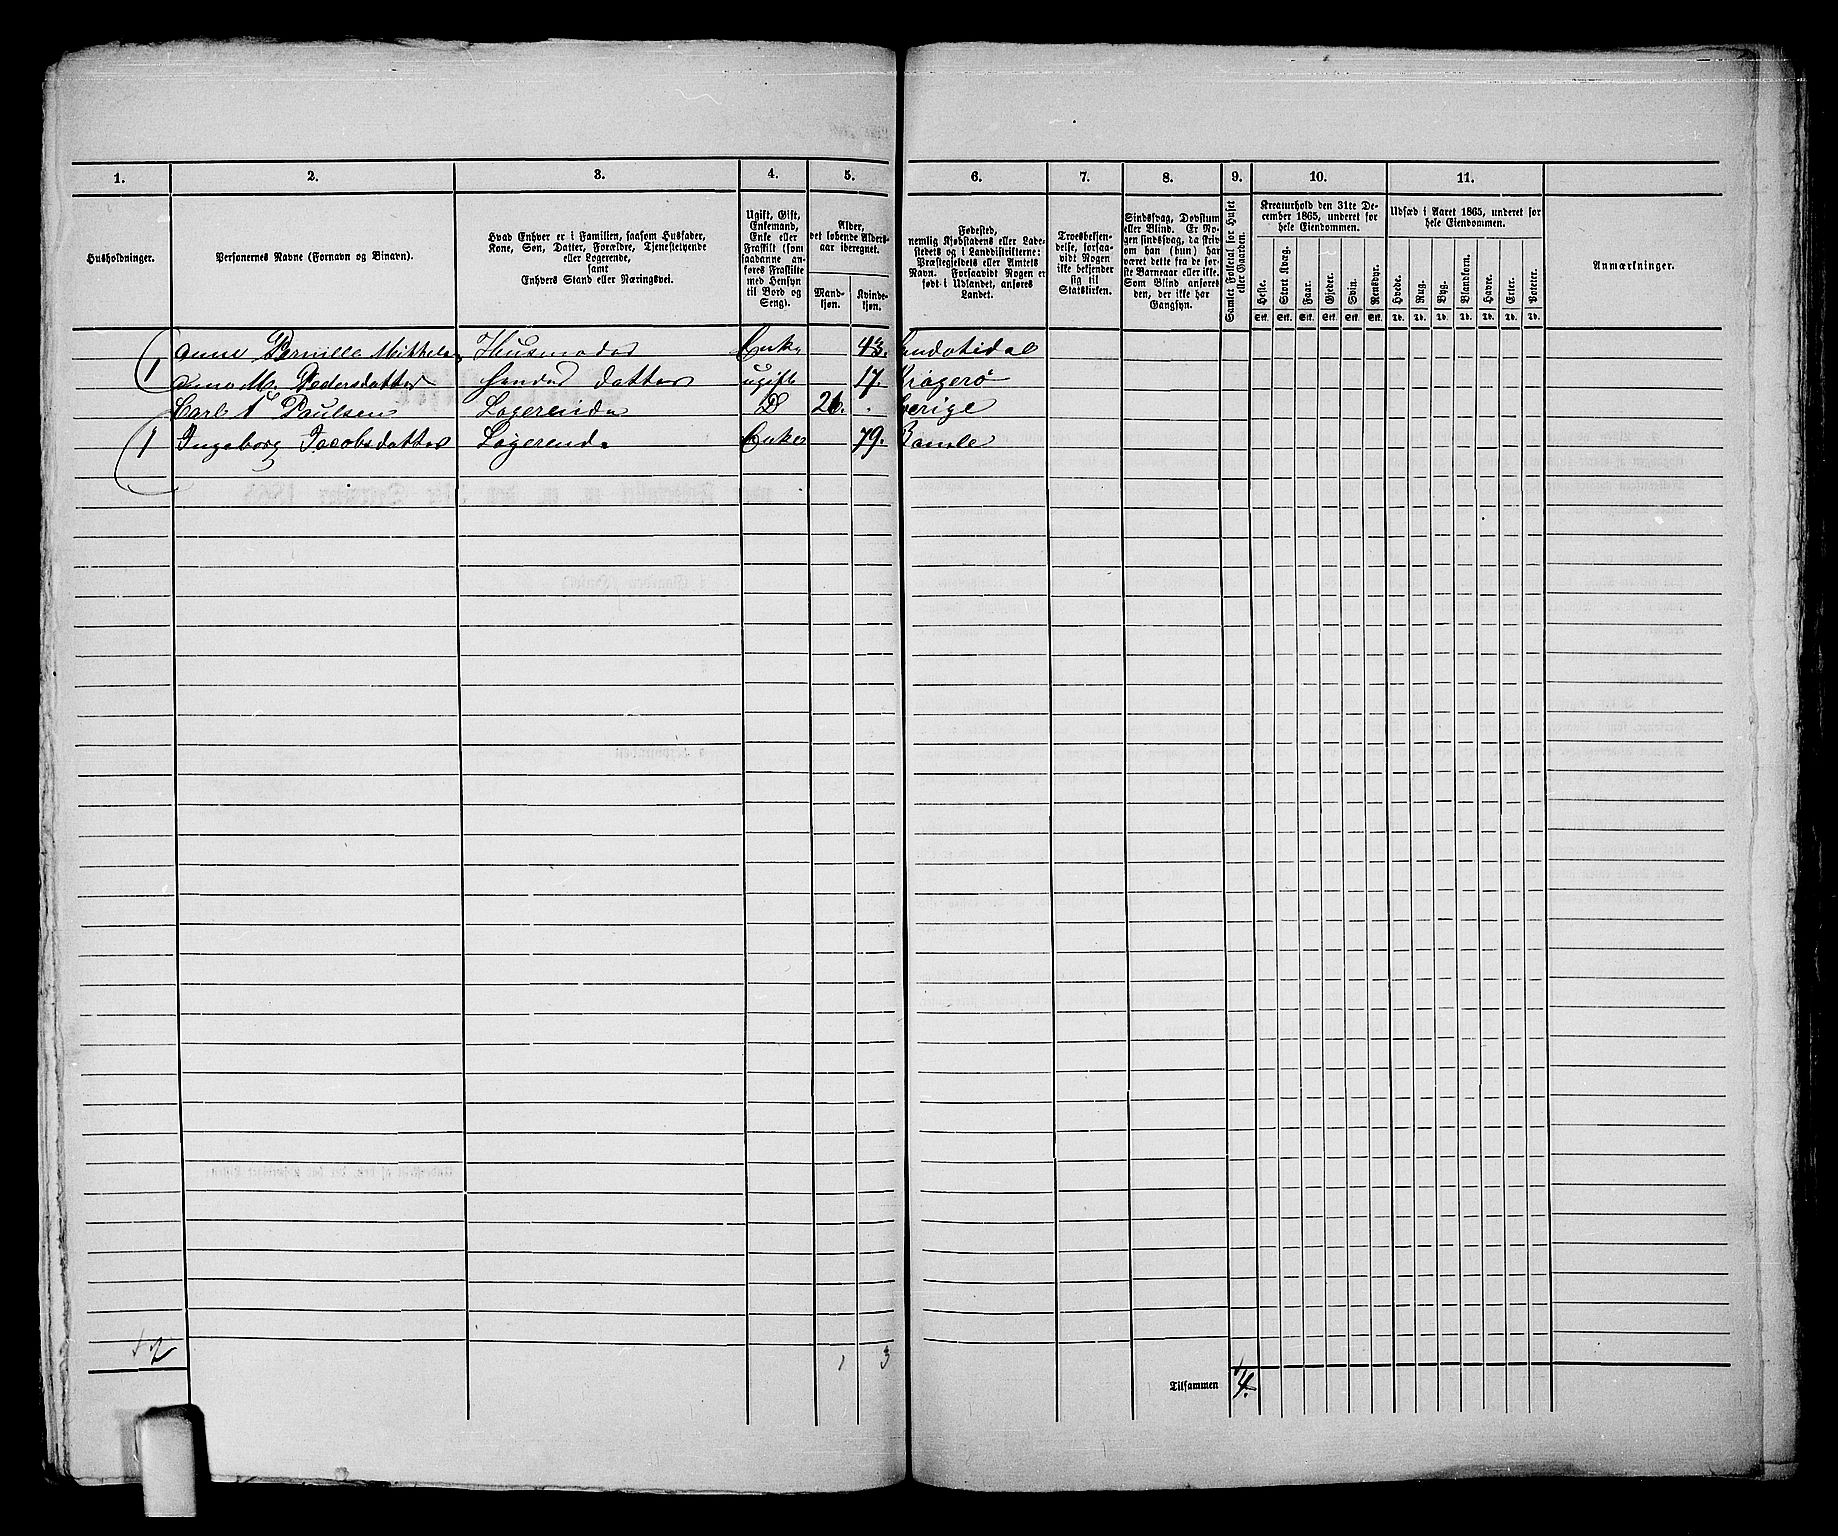 1. 2. 3. 4. 5. 6. 7. 8. 9. 10. 11.
Husholdninger.
Personernes Navne (Fornavn og Binavn).
Hvad Enhver er i Familien, saasom Husfader,
Kone, Søn, Datter, Forældre, Tjenestetyende
eller Logerende,
samt
Enhvers Stand eller Næringsvei.
Ugift, Gift,
Enkemand,
Enke eller
Fraskilt (som
saadanne an-
føres Fraskilte
med Hensyn
til Bord og
Seng).
Alder,
det løbende Alders-
aar iberegnet.
Mand-
kjøn.
Kvinde-
kjøn.
Fødested,
nemlig Kjøbstadens eller Lade-
stedets og i Landdistrikterne:
Præstegjeldets eller Amtets
Navn. Forsaavidt Nogen er
født i Udlandet, anføres
Landet.
Troesbekjen-
delse, forsaa-
vidt Nogen
ikke bekjender
sig til
Statskirken.
Sindssvag, Døvstum
eller Blind. Er No-
gen sindssvag, da skriv
om han (hun) har
været dette fra de før-
ste Barneaar eller ikke.
Som Blind anføres
den, der ikke har
Gangsyn.
Samlet Folketal for Huset
eller Gaarden.
Kreaturhold den 31te De-
cember 1865, underet for
hele Eiendommen.
Heste. Stort Kvæg. Faar. Gjeder. Svin. Rensdyr.
Stk. Stk. Stk. Stk. Stk. Stk.
Udsæd i Aaret 1865, underet for
hele Eiendommen.
Hvede. Rug. Byg. Blandkorn. Havre. Erter. Poteter.
Td. Td. Td. Td. Td. Td. Td.
Anmærkninger.
1 Anne Pernille Mikkels. Husmoder Enke 43.
Anne M. Pedersdatter hendes datter ugift 17. Kragerø
Carl Paulsen Logerende D 26. Sverige
1 Ingeborg Jacobsdatter Logerende Enke 79. Bamle
2 1 3
Tilsammen 4.